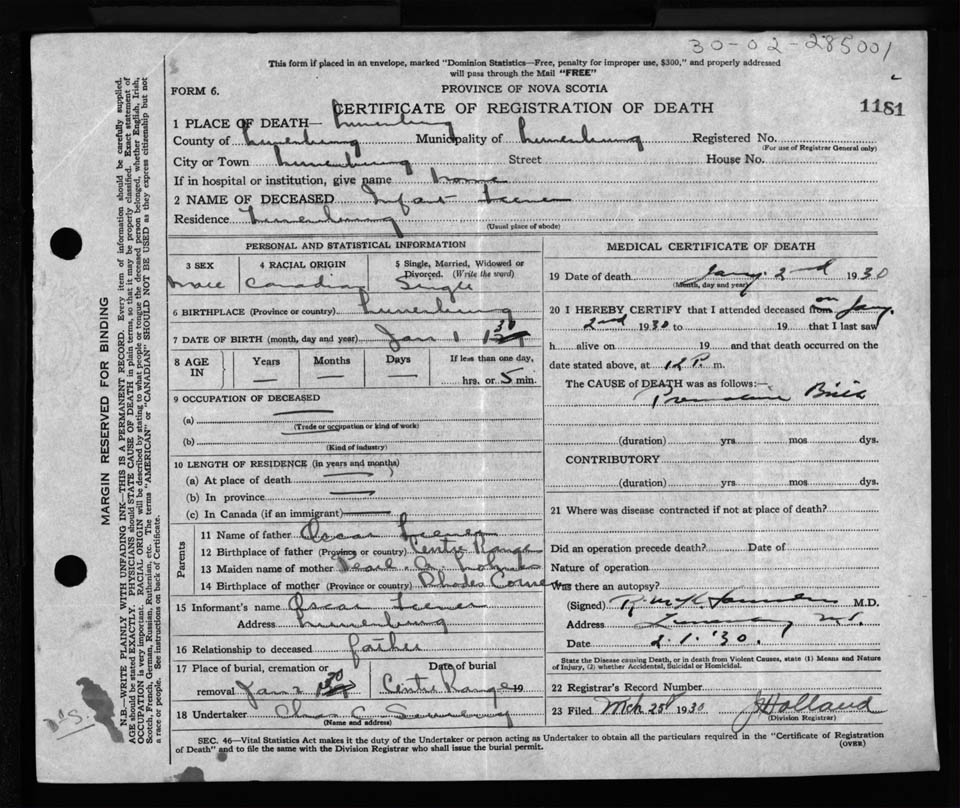 30-02-285001
This form if placed in an envelope, marked "Dominion Statistics—Free, penalty for improper use, $300," and properly addressed
will pass through the Mail "FREE"
FORM 6.
PROVINCE OF NOVA SCOTIA
CERTIFICATE OF REGISTRATION OF DEATH
1181
1 PLACE OF DEATH— Lunenburg
County of Lunenburg Municipality of Lunenburg Registered No.
(For use of Registrar General only)
City or Town Lunenburg Street House No.
If in hospital or institution, give name home
2 NAME OF DECEASED Infant
Residence Lunenburg
(Usual place of abode)
PERSONAL AND STATISTICAL INFORMATION
3 SEX 4 RACIAL ORIGIN 5 Single, Married, Widowed or
Divorced. (Write the word)
Male Canadian Single
6 BIRTHPLACE (Province or country) Lunenburg
7 DATE OF BIRTH (month, day and year) Jan 1 30
8 AGE IN Years Months Days If less than one day,
— — — hrs. or 5 min.
9 OCCUPATION OF DECEASED
(a) —
(Trade or occupation or kind of work)
(b) —
(Kind of industry)
10 LENGTH OF RESIDENCE (in years and months)
(a) At place of death —
(b) In province —
(c) In Canada (if an immigrant) —
Parents
11 Name of father Oscar
12 Birthplace of father (Province or country) Centre Range
13 Maiden name of mother Pearl
14 Birthplace of mother (Province or country) Rhodes Corner
15 Informant's name Oscar
Address Lunenburg
16 Relationship to deceased father
17 Place of burial, cremation or Date of burial
removal Jan 2 30 Centre Range 19
18 Undertaker Chas C
(Name and address)
MEDICAL CERTIFICATE OF DEATH
19 Date of death Jany. 2nd 1930
(Month, day and year)
20 I HEREBY CERTIFY that I attended deceased from on Jany.
2nd 1930 to 19 that I last saw
h alive on 19 and that death occurred on the
date stated above, at 12 P. m.
The CAUSE of DEATH was as follows:—
Premature Birth
(duration) yrs. mos. dys.
CONTRIBUTORY
(duration) yrs. mos. dys.
21 Where was disease contracted if not at place of death?
Did an operation precede death? Date of
Nature of operation
Was there an autopsy?
(Signed) M.D.
Address Lunenburg N.S.
Date 2.1.'30.
State the Disease causing Death, or in death from Violent Causes, state (1) Means and Nature
of Injury, (2) whether Accidental, Suicidal or Homicidal.
22 Registrar's Record Number
23 Filed Mch 25 1930 J Holland
(Division Registrar)
SEC. 46—Vital Statistics Act makes it the duty of the Undertaker or person acting as Undertaker to obtain all the particulars required in the "Certificate of Registration
of Death" and to file the same with the Division Registrar who shall issue the burial permit.
(OVER)
MARGIN RESERVED FOR BINDING
N.B.—WRITE PLAINLY WITH UNFADING INK—THIS IS A PERMANENT RECORD. Every item of information should be carefully supplied.
AGE should be stated EXACTLY. PHYSICIANS should STATE CAUSE OF DEATH in plain terms, so that it may be properly classified. Exact statement of
OCCUPATION is very important. RACIAL ORIGIN will be described by stating to what people or tongue the deceased person belonged, whether English, Irish,
Scotch, French, German, Russian, Ruthenian, etc. The terms "AMERICAN" or "CANADIAN" SHOULD NOT BE USED as they express citizenship but not
a race or people. See instructions on back of Certificate.